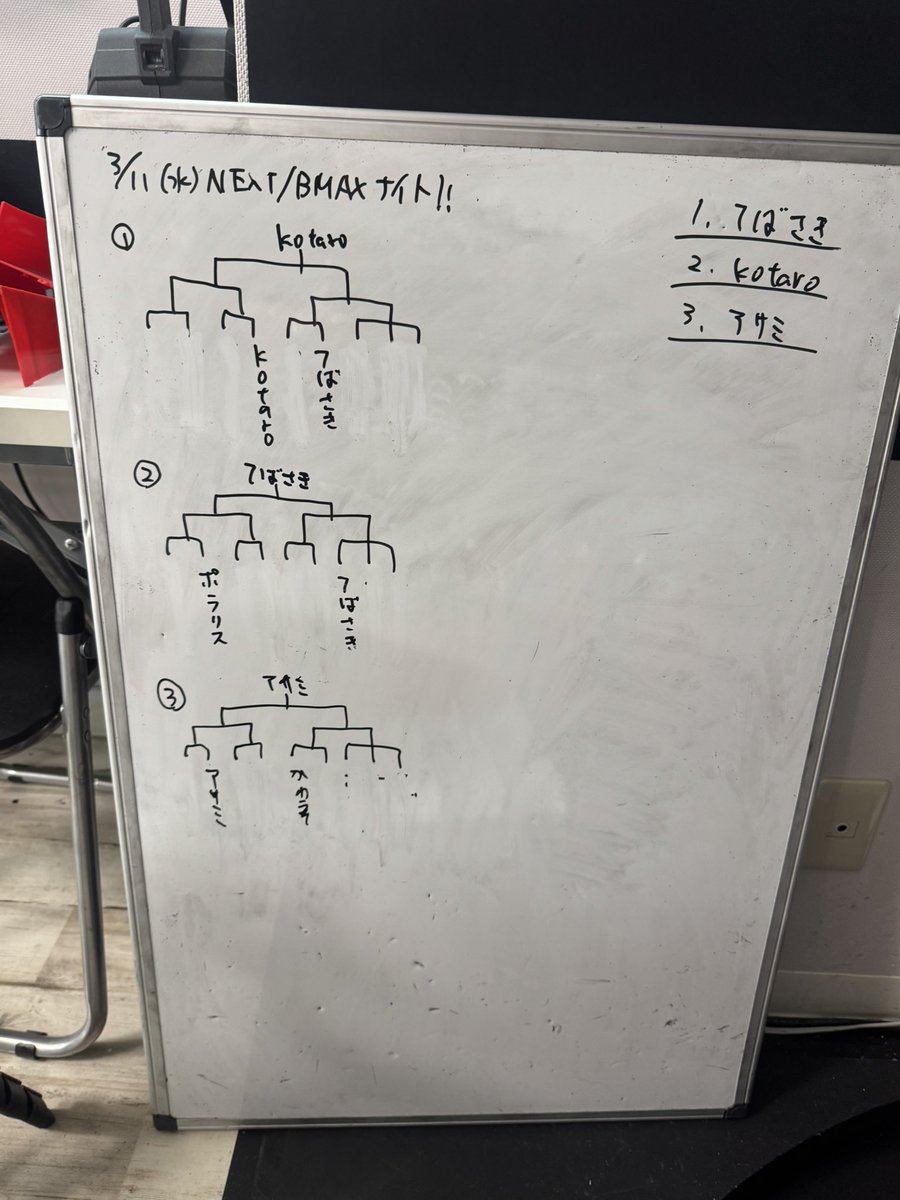 3/11 (水) NEXT/BMAX ナイト!!
1. てばさき
2. kotaro
3. アサミ
①
kotaro
kotaro
てばさき
②
てばさき
ポラリス
てばさき
③
アサミ
アサミ